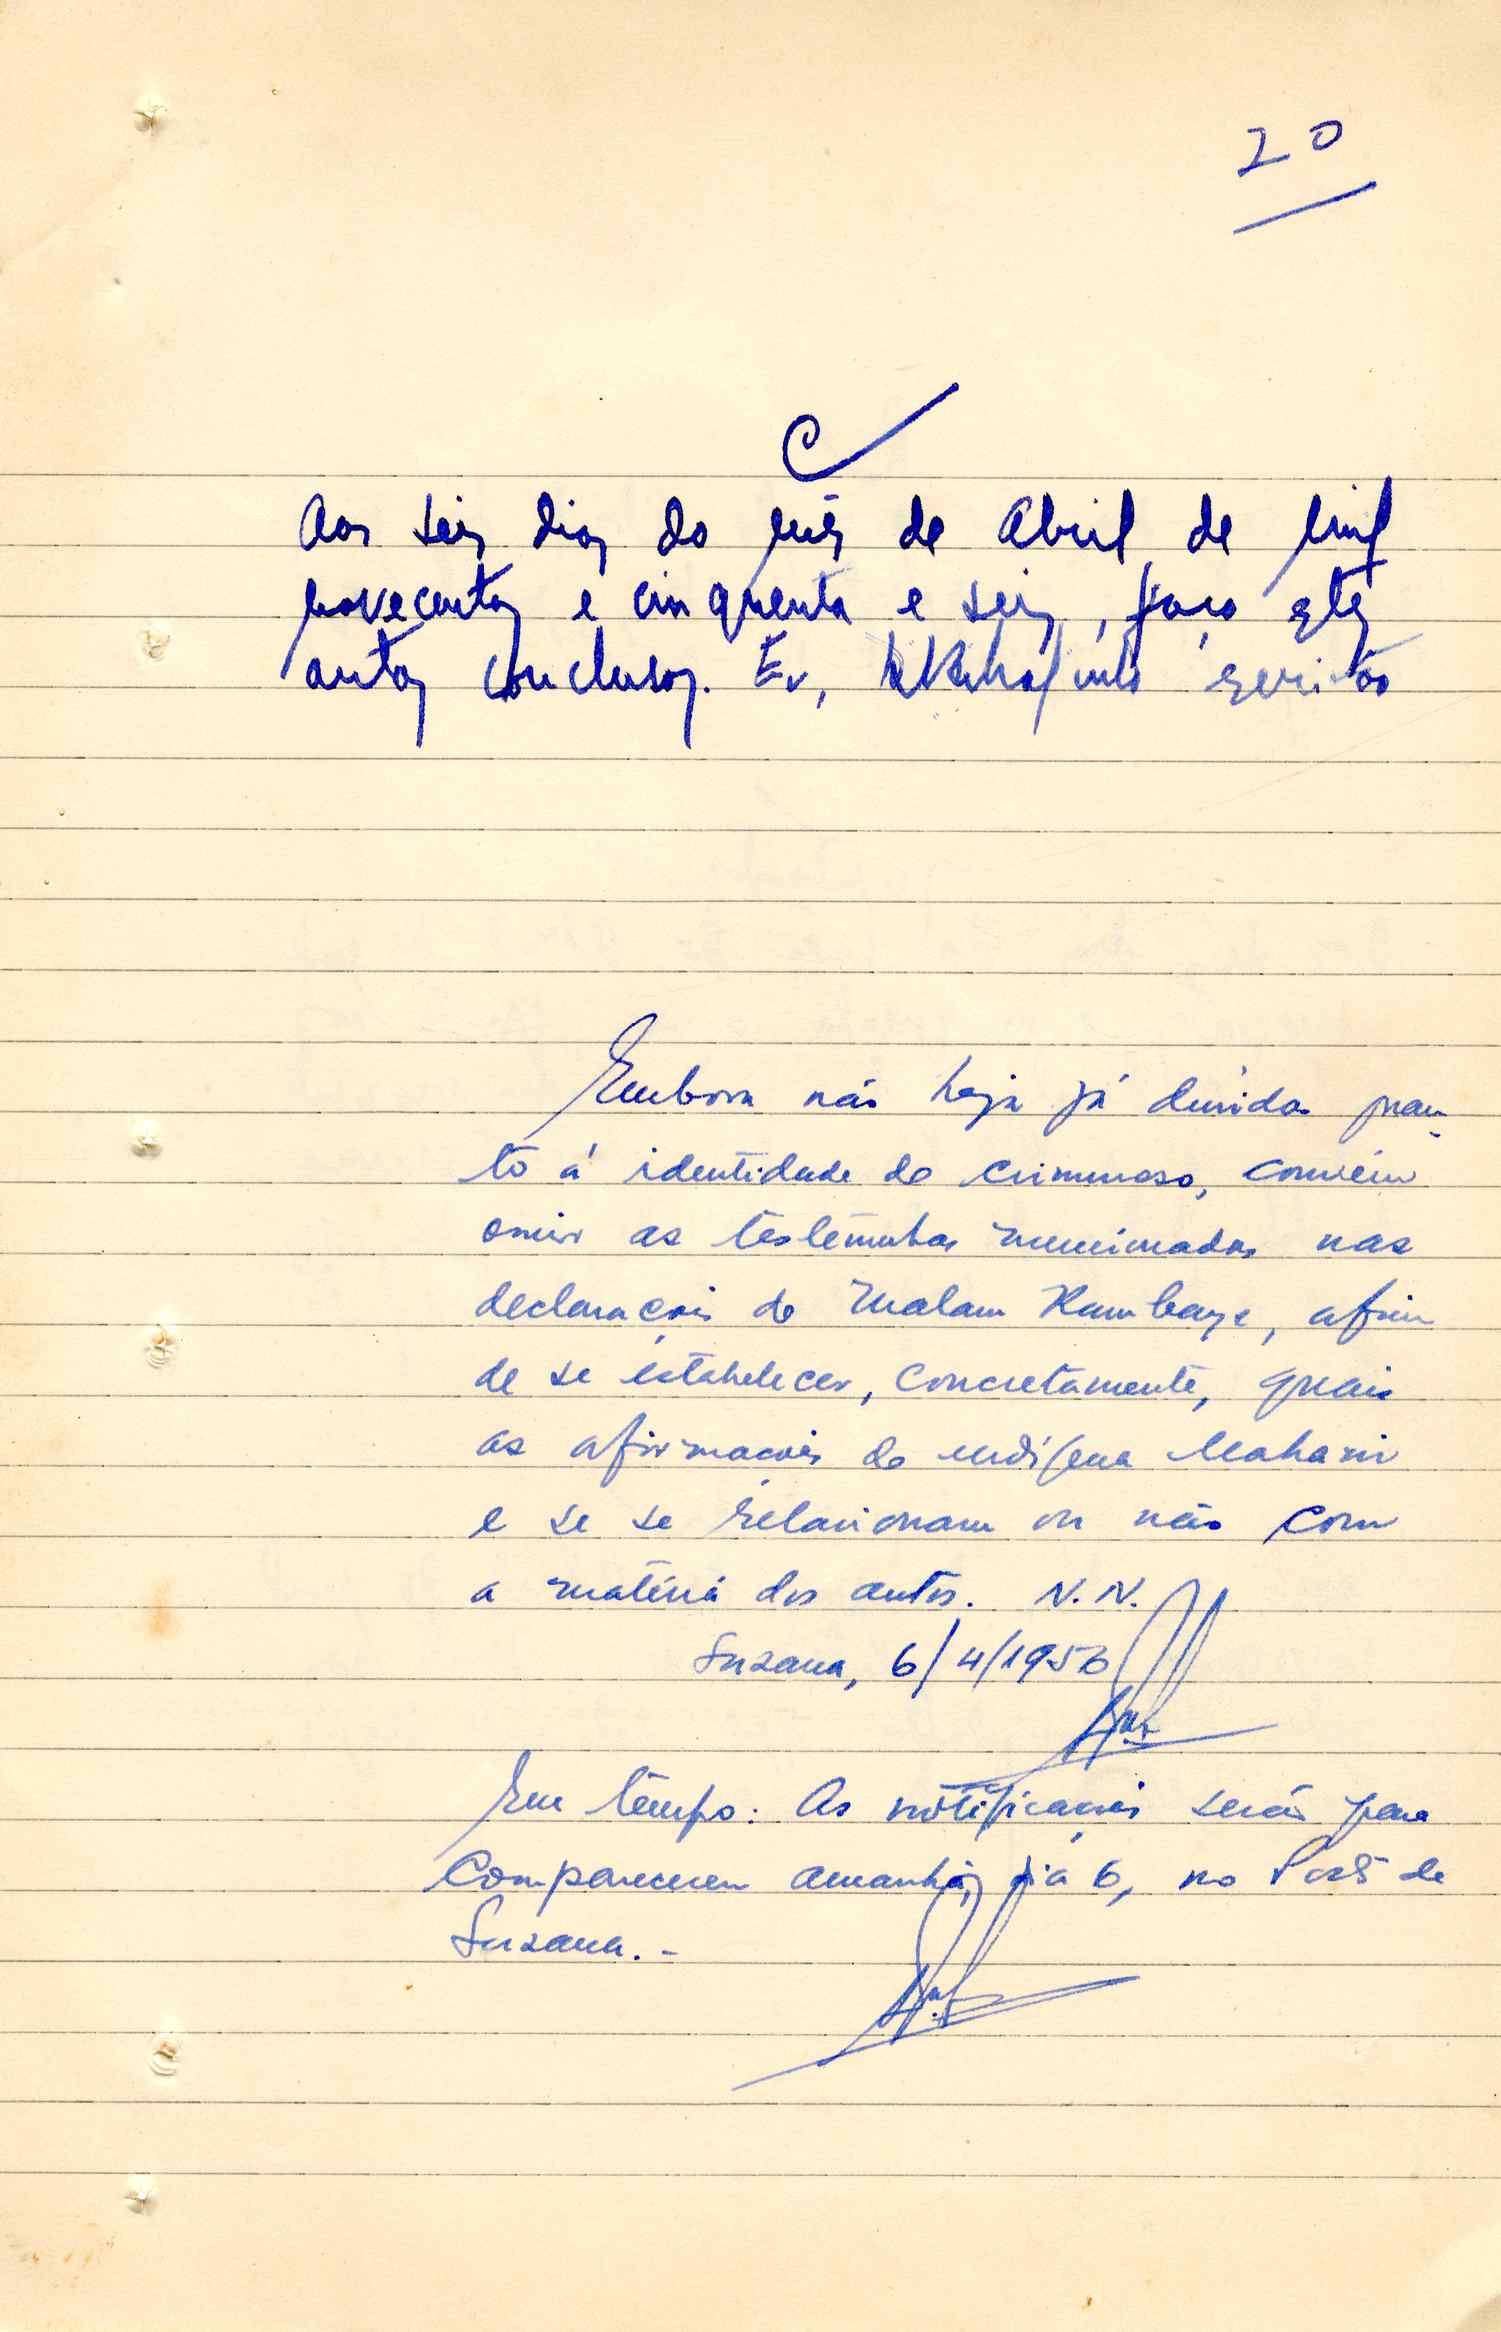 20
C
Aos seis dias do mês de Abril de mil
novecentos e cinquenta e seis, faço estes
autos conclusos. Eu, escrivão
Embora não haja já dúvidas quan-
to á identidade do criminoso, convém
ouvir as testemunhas mencionadas nas
declarações de Malam Kambaye, afim
de se estabelecer, concretamente, quais
as afirmações do indígena
e se se relacionam ou não com
a matéria dos autos. N.N.
Suzana, 6/4/1956
Em tempo: As notificações serão para
comparecerem amanhã, dia 6, no Posto de
Suzana. -